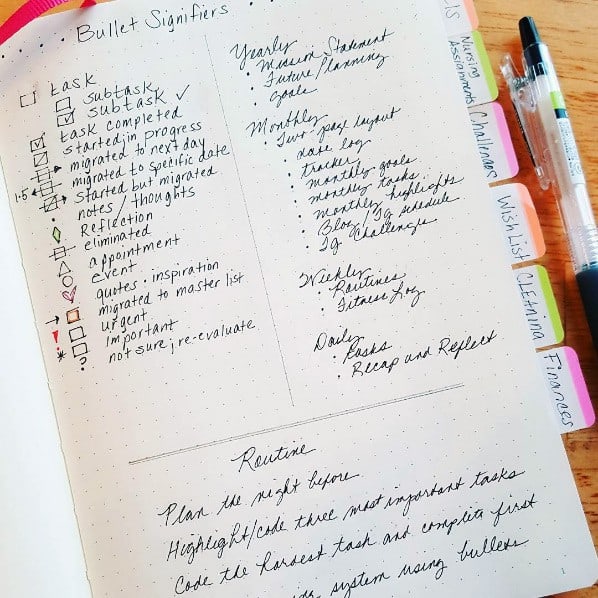 Bullet Signifiers
task
subtask
subtask ✓
task completed
started, in progress
migrated to next day
1.5 migrated to specific date
started but migrated
notes / thoughts
Reflection
eliminated
appointment
event
quotes - inspiration
migrated to master list
! urgent
* Important
? not sure; re-evaluate
Yearly
• Mission Statement
• Future Planning
• Goals
Monthly
• Two page layout
• date log
• tracker
• monthly goals
• monthly tasks
• monthly highlights
• Blog / Ig schedule
• Ig Challenges
Weekly
• Routines
• Fitness Log
Daily
• tasks
• Recap and Reflect
Routine
Plan the night before
Highlight/code three most important tasks
Code the hardest task and complete first
system using bullets
1
ls
Nursing
Assignments
Challenges
Wish List
Cleaning
Finances